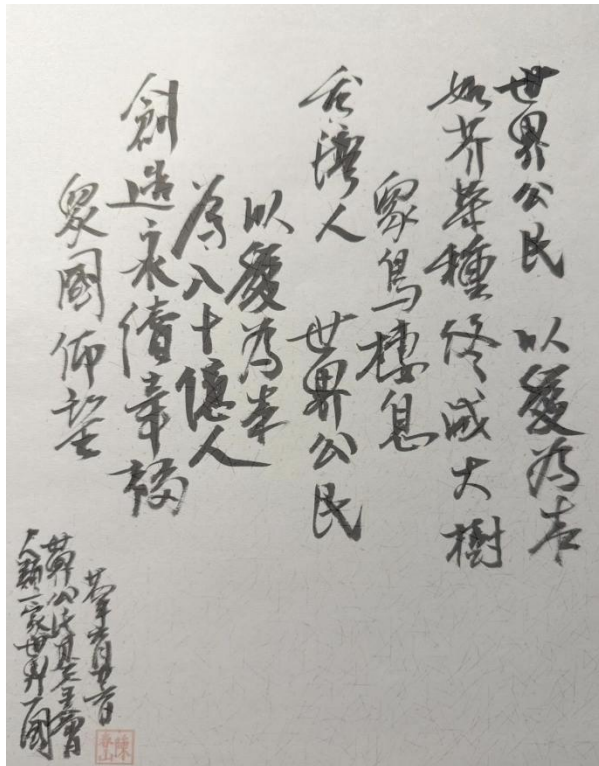 世界公民 以愛為本
如芥菜種終成大樹
眾鳥棲息
台灣人 世界公民
以愛為本
為八十億人
創造永續幸福
眾國仰望
年六月
世界公民
人類一家世界一國
陳春山